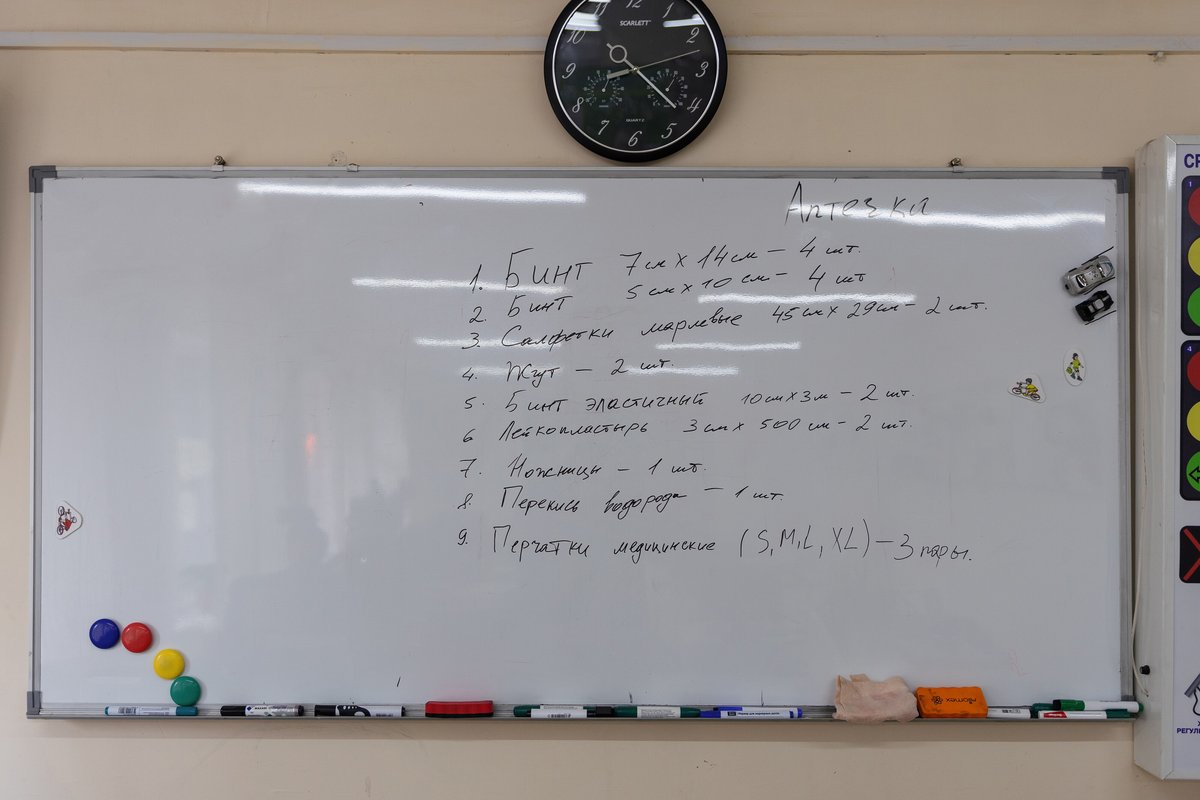 12
11
1
10
SCARLETT
2
9
3
8
4
7
QUARTZ
5
6
Аптечка
1. Бинт 7см х 14см – 4 шт.
2. Бинт 5см х 10 см – 4 шт
3. Салфетки марлевые 45см х 29см – 2 шт.
4. Жгут – 2 шт.
5. Бинт эластичный 10см х 3м – 2 шт.
6 Лейкопластырь 3см х 500см – 2 шт.
7. Ножницы – 1 шт.
8. Перекись водорода – 1 шт.
9. Перчатки медицинские (S, M, L, XL) – 3 пары.
СР
1
4
РЕГУЛ